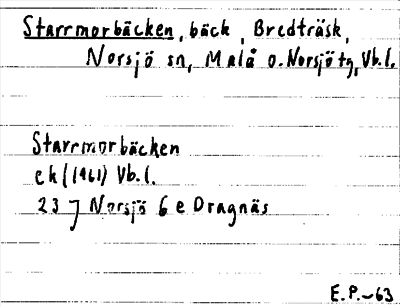 Starrmorbäcken, bäck, Bredträsk,
Norsjö sn, Malå o. Norsjö tg, Vb.l.
Starrmorbäcken
ek (1961) Vb.l.
23 J Norsjö 6 e Dragnäs
E.P.-63